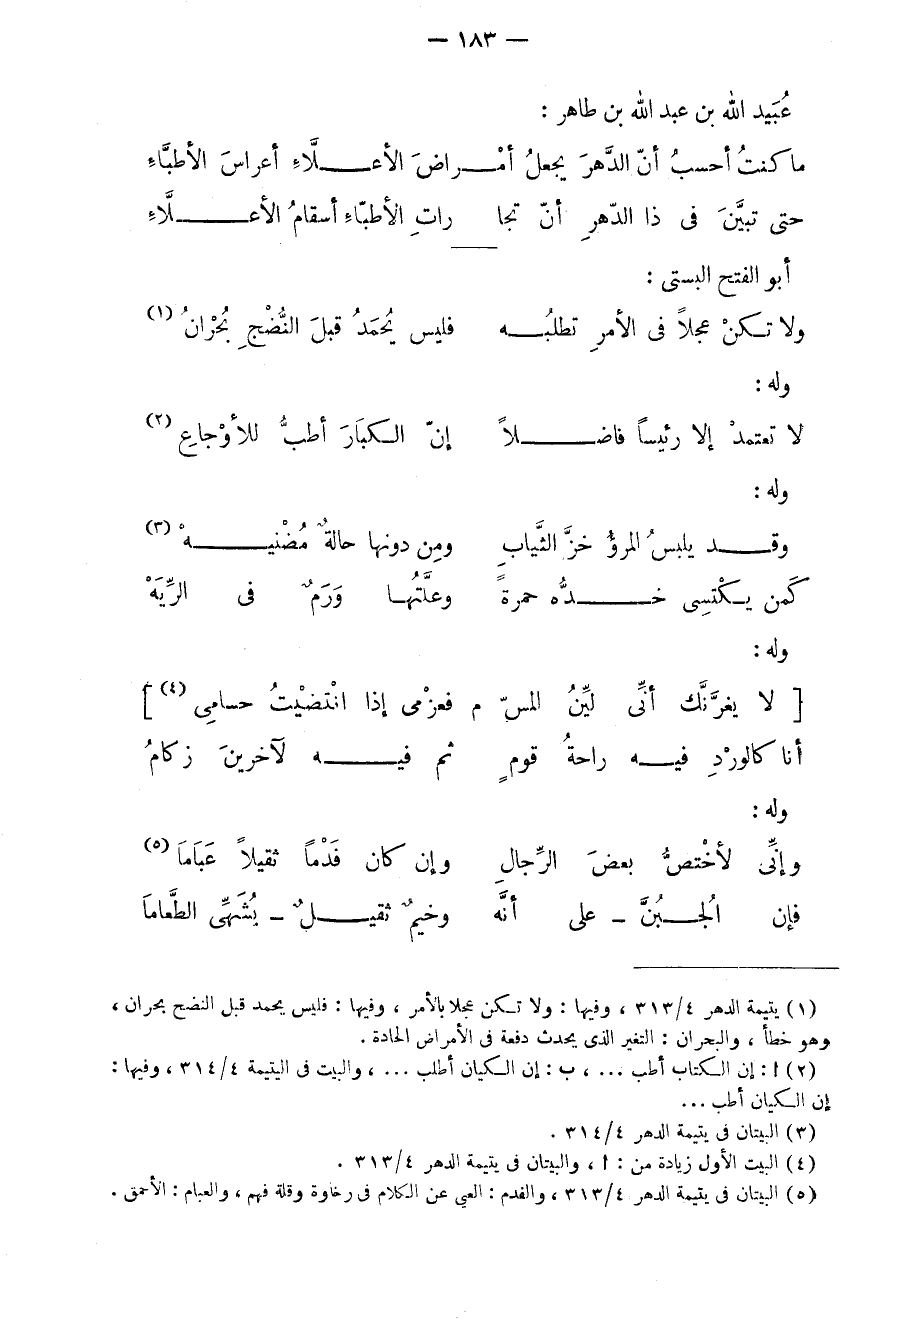 — ١٨٣ —
عُبَيد الله بن عبد الله بن طاهر :
ما كنتُ أحسبُ أنّ الدَّهرَ يجعلُ أمْراضَ الأعلَّاءِ أعراسَ الأطبَّاءِ
حتى تبيَّنَ فى ذا الدّهرِ أنّ تجا راتِ الأطبّاءِ أسقامُ الأعلَّاءِ
أبو الفتح البستى :
ولا تكنْ عجلاً فى الأمرِ تطلبُه فليس يُحمَدُ قبلَ النُّضْجِ بُحْرانُ (١)
وله :
لا تعتمدْ إلا رئيساً فاضلاً إنّ الكبَارَ أطبُّ للأوْجاعِ (٢)
وله :
وقد يلبسُ المرؤُ خزَّ الثّيابِ ومِن دونها حالةٌ مُضْنيهْ (٣)
كَمن يكْتسِى خدُّه حمرةً وعلَّتُها وَرَمٌ فى الرِّيَهْ
وله :
[ لا يغرَّنَّك أنِّى ليِّنُ المسّ م فعزْمى إذا انْتضيْتُ حسامِى (٤) ]
أنا كالورْدِ فيه راحةُ قومٍ ثم فيه لآخرينَ زكامُ
وله :
وإنِّى لأخْتصُّ بعضَ الرِّجالِ وإن كان فَدْماً ثقيلاً عَبَامَا (٥)
فإن الجُبُنَّ — على أنَّه وخيمٌ ثقيلٌ — يُشَهِّى الطَّعاما
(١) يتيمة الدهر ٣١٣/٤ ، وفيها : ولا تكن عجلا بالأمر ، وفيها : فليس يحمد قبل النضج بحران ،
وهو خطأ ، والبحران : التغير الذى يحدث دفعة فى الأمراض الحادة .
(٢) ا : إن الكتاب أطب ... ، ب : إن الكيان أطلب ... ، والبيت فى اليتيمة ٣١٤/٤ ، وفيها :
إن الكيان أطب ...
(٣) البيتان فى يتيمة الدهر ٣١٤/٤ .
(٤) البيت الأول زيادة من : ا ، والبيتان فى يتيمة الدهر ٣١٣/٤ .
(٥) البيتان فى يتيمة الدهر ٣١٣/٤ ، والفدم : العي عن الكلام فى رخاوة وقلة فهم ، والعبام : الأحمق .